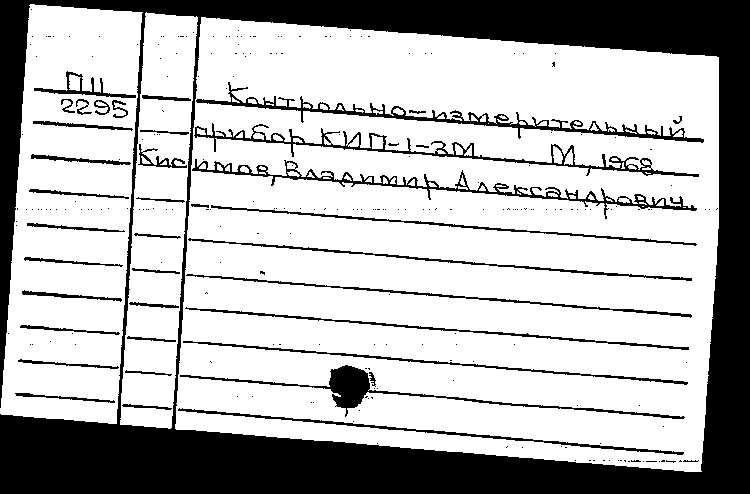 П 11
2295
Контрольно-измерительный
прибор КИП-1-3М М., 1968
Владимир Александрович.